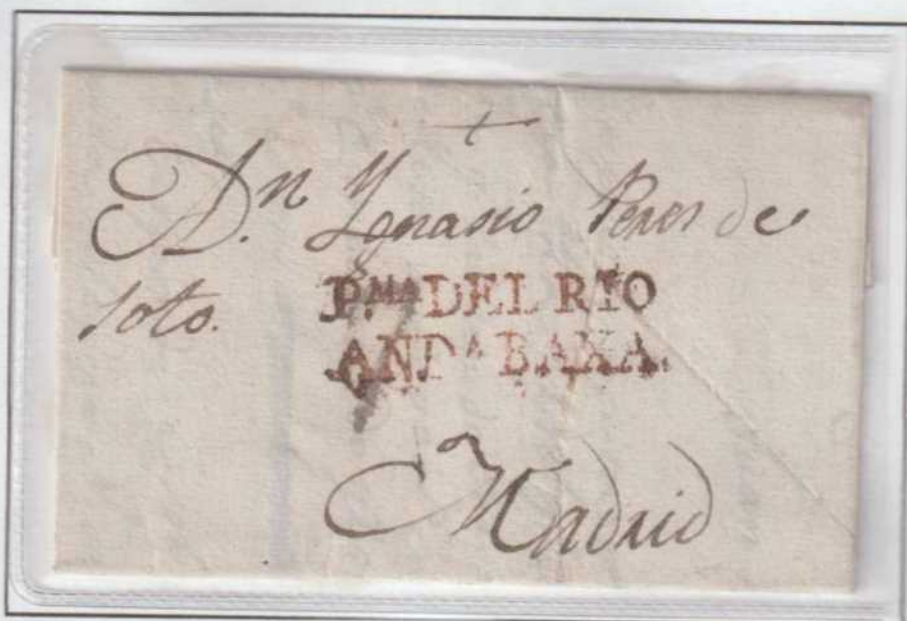 Dn. Ygnasio Peres de
soto.
PMA DEL RIO
ANDA BAXA.
Madrid